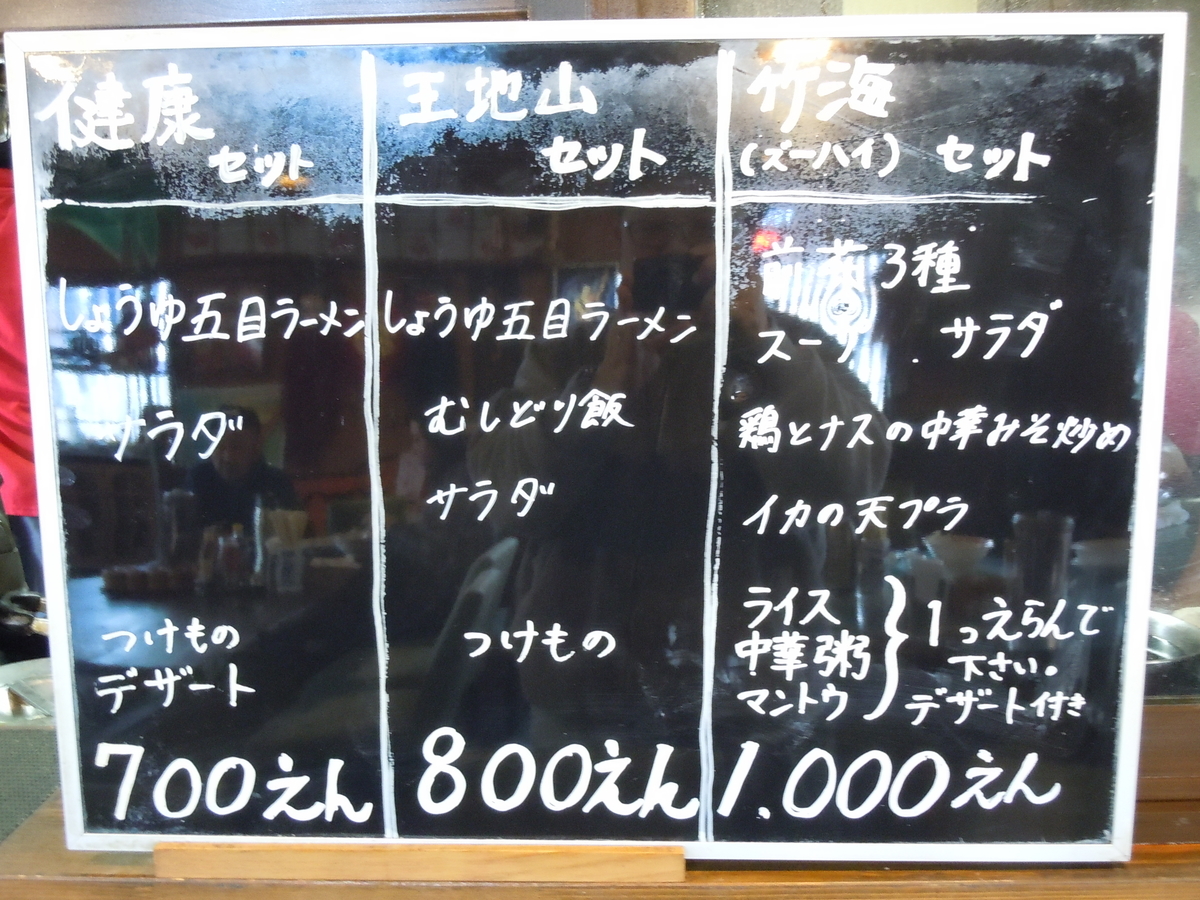 健康
セット
しょうゆ五目ラーメン
サラダ
つけもの
デザート
700えん
王地山
セット
しょうゆ五目ラーメン
むしどり飯
サラダ
つけもの
800えん
竹海
(ズーハイ) セット
前菜3種
スープ . サラダ
鶏とナスの中華みそ炒め
イカの天プラ
ライス
中華粥
マントウ
1つえらんで
下さい。
デザート付き
1.000えん